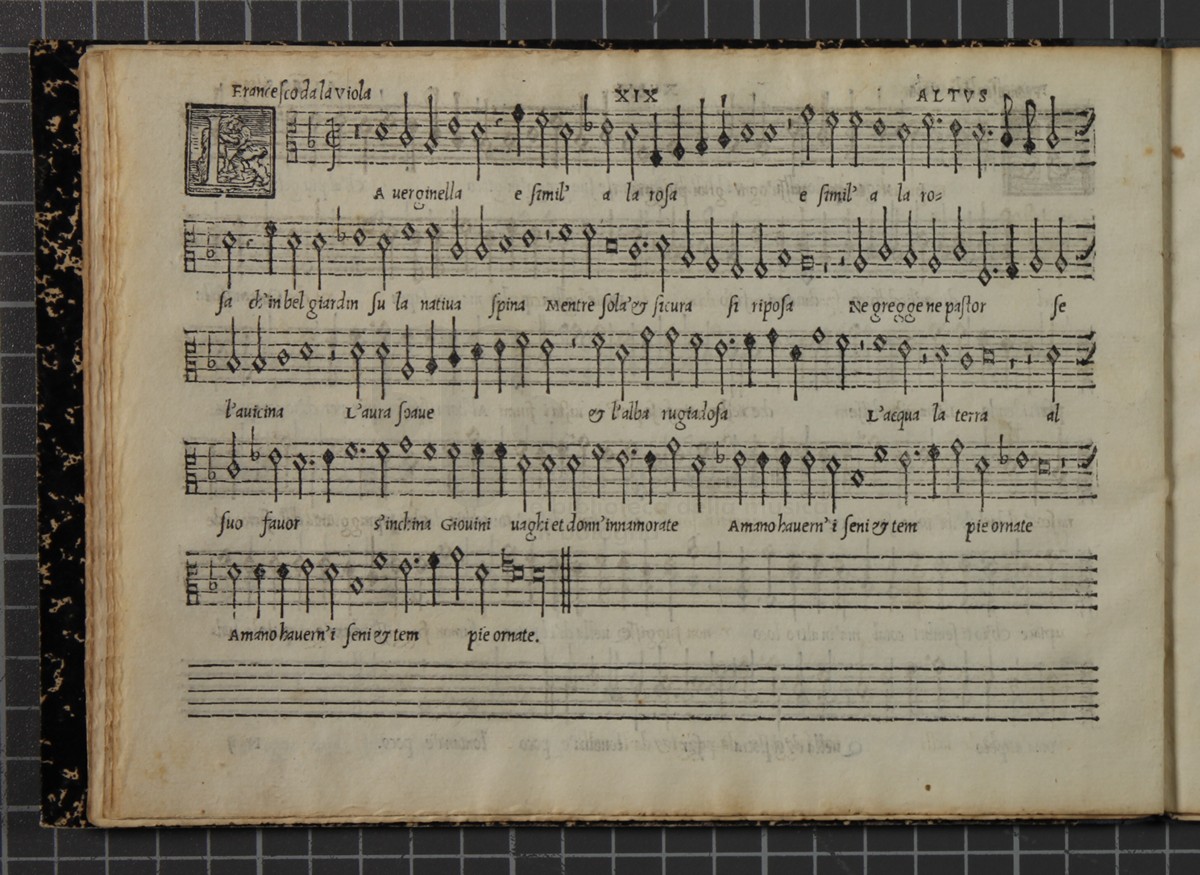 Francesco da la viola XIX ALTVS
LA verginella e simil' a la rosa e simil' a la ro=
sa ch'in bel giardin su la natiua spina Mentre sola & sicura si riposa Ne gregge ne pastor se
l'auicina L'aura soaue & l'alba rugiadosa L'acqua la terra al
suo fauor s'inchina Giouini uaghi et donn'innamorate Amano hauern'i seni & tem pie ornate
Amano hauern'i seni & tem pie ornate.